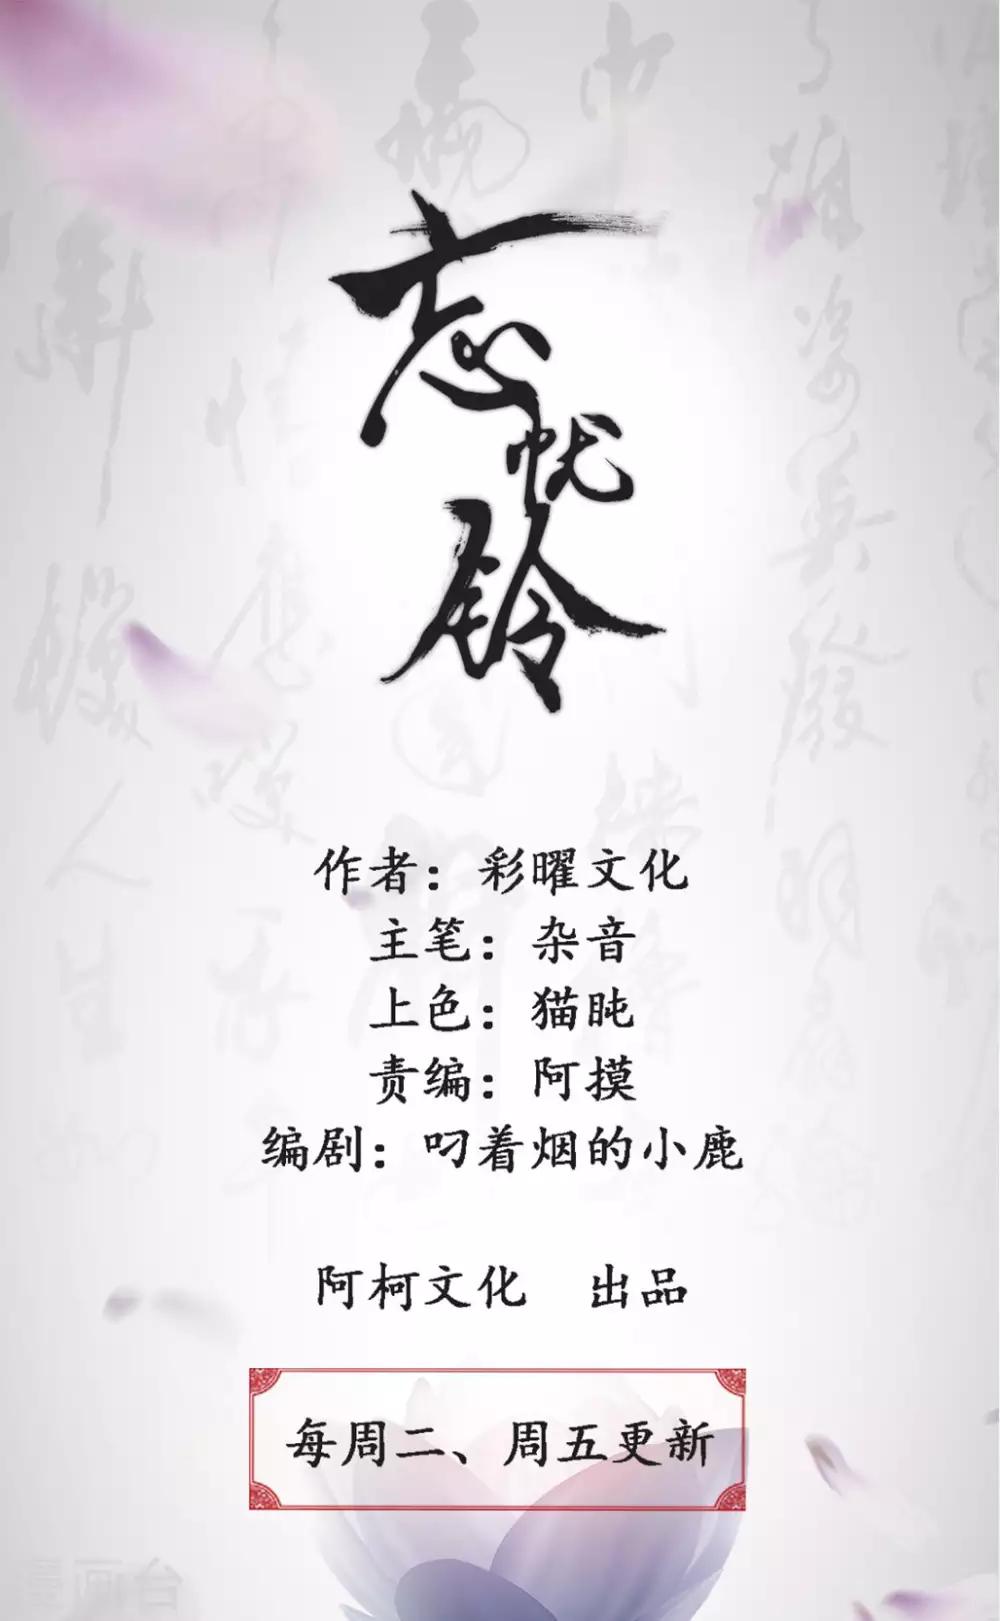 忘忧铃
作者：彩曜文化
主笔：杂音
上色：猫盹
责编：阿摸
编剧：叼着烟的小鹿
阿柯文化　出品
每周二、周五更新
漫画台